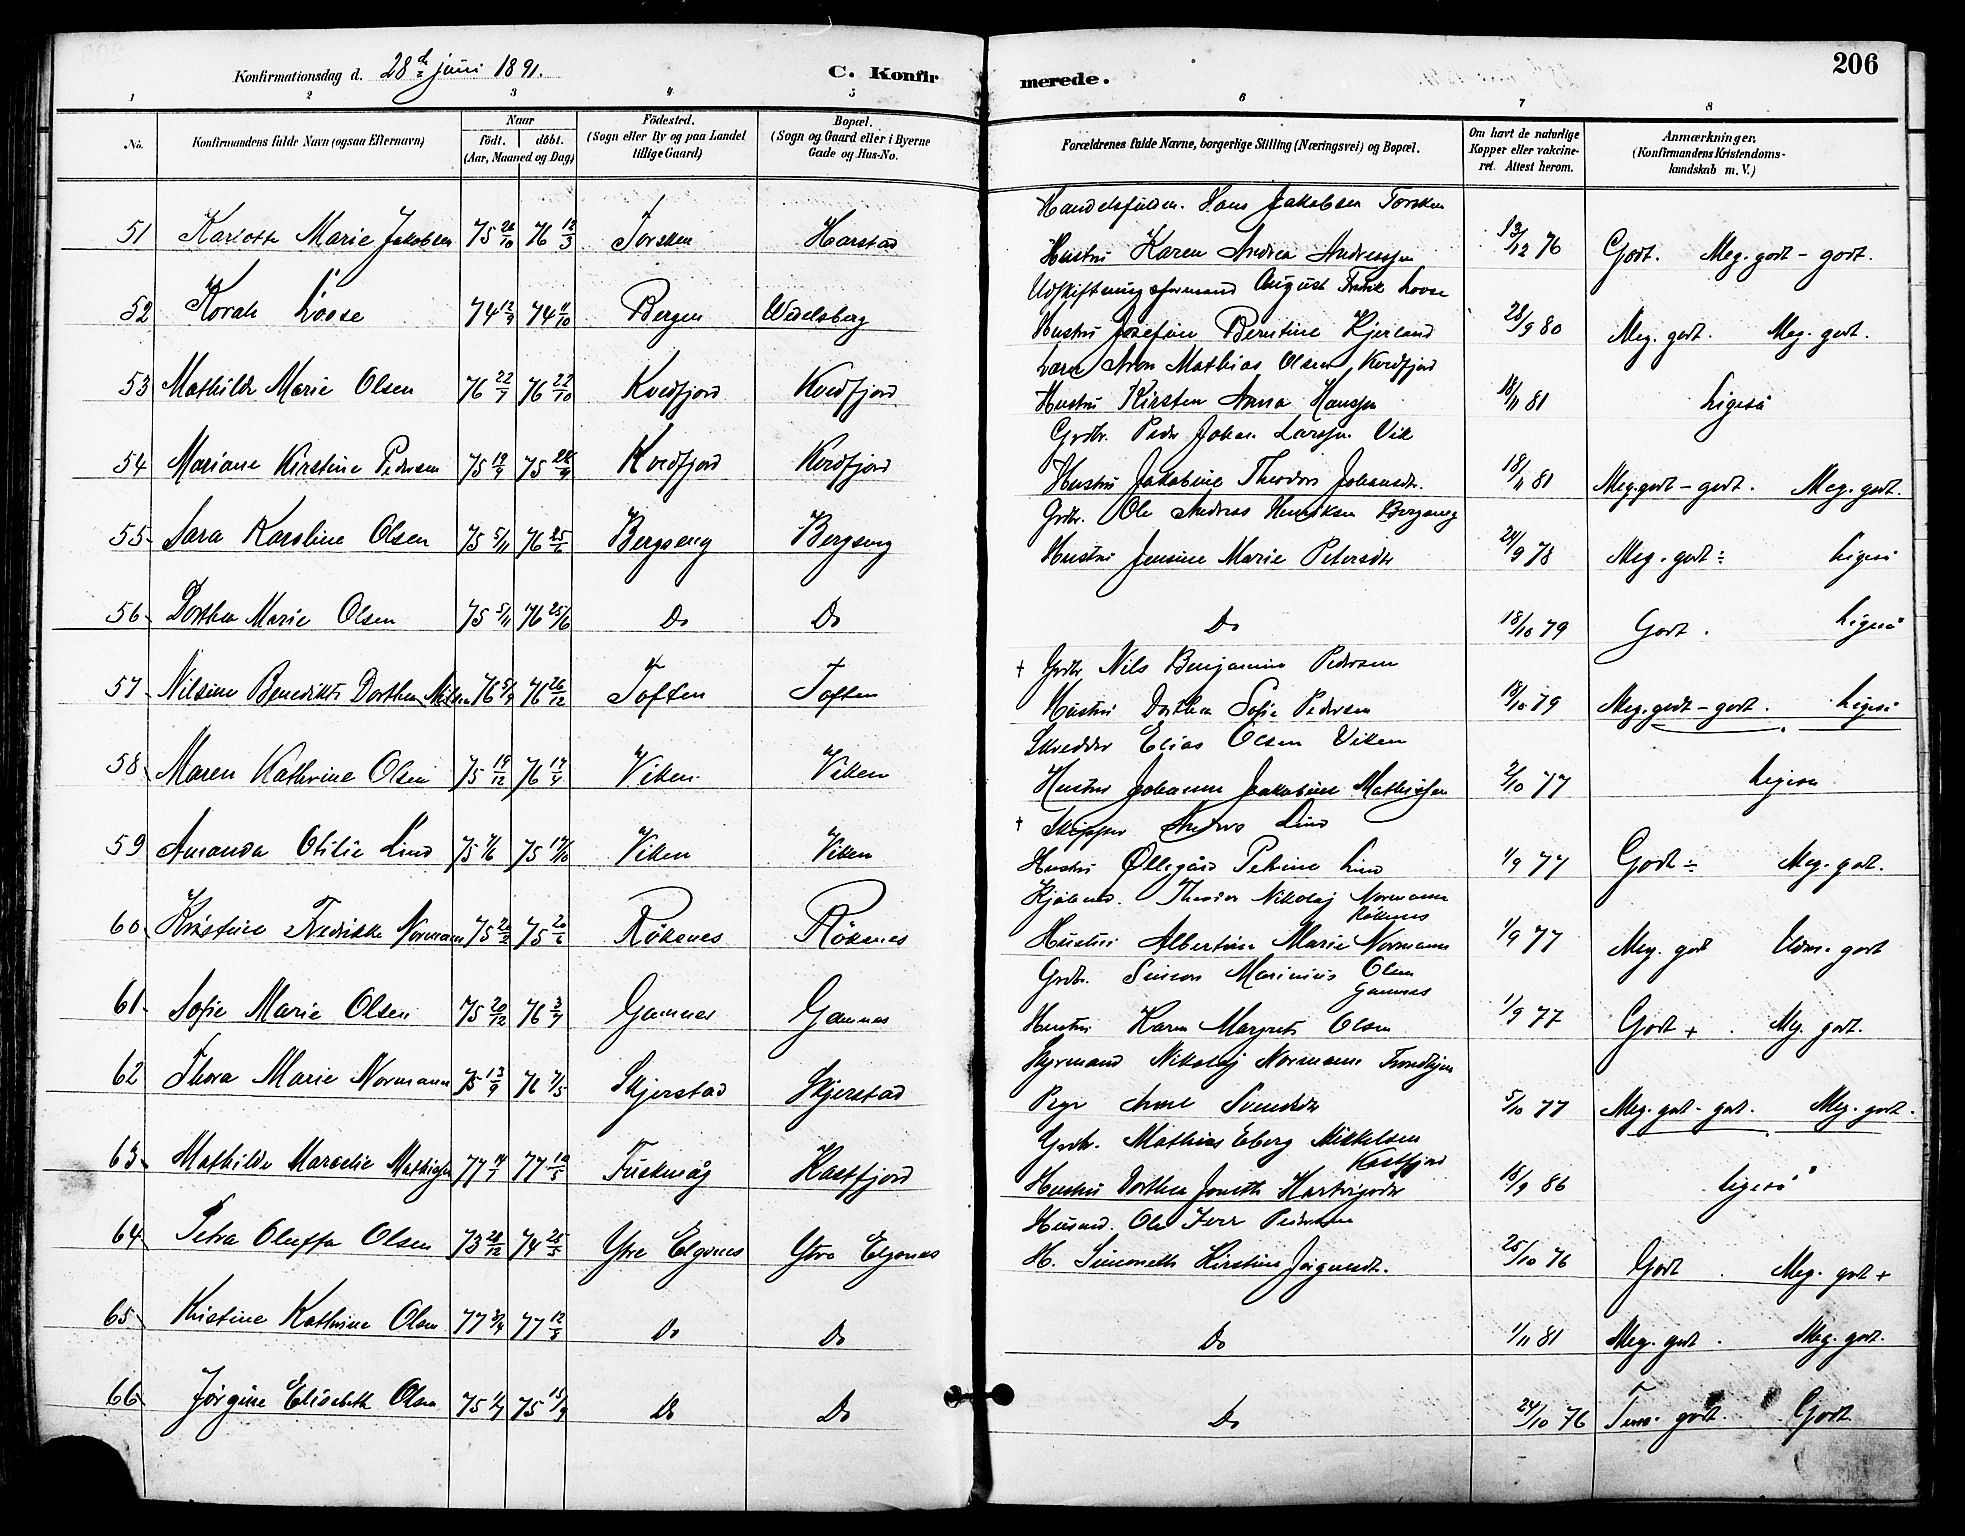 206
Konfirmationsdag d. 28d juni 1891.
C. Konfirmerede.
1 2 3 4 5 6 7 8
No. Konfirmandens fulde Navn (ogsaa Efternavn) Naar Födt. döbt. (Aar, Maaned og Dag) Födested. (Sogn eller By og paa Landet tillige Gaard) Bopæl. (Sogn og Gaard eller i Byerne Gade og Hus-No. Forældrenes fulde Navne, borgerlige Stilling (Næringsvei) og Bopæl. Om havt de naturlige Kopper eller vakcineret. Attest herom. Anmærkninger. (Konfirmandens Kristendomskundskab m. V.)
Hans Jakobsen Torsken
51 Karlotte Marie Jakobsen 75 20/10 76 12/3 Torsken Harstad Hustru Karen Andrea Andreassen 13/12 76 Godt. Meg. godt - godt.
Udskiftningsformand August Fredrik Loose
52 Korah Loose 74 12/9 74 11/10 Bergen Wedelsberg Hustru Josefine Berntine Kjerland 28/9 80 Meg. godt. Meg. godt.
Aron Mathias Olsen, Kvedfjord
53 Mathilde Marie Olsen 76 22/7 76 22/10 Kvedfjord Kvedfjord Hustru Kirsten Anna Hansen 18/11 81 Ligeså
Grdbr. Peder Johan Larssen Vik
54 Mariane Kirstine Pedersen 75 19/9 75 28/9 Kvedfjord Kvedfjord Hustru Jakobine Theodora Johansdtr. 18/11 81 Meg. godt - godt. Meg. godt.
Grdbr. Ole Andreas Henriksen Bergseng
55 Sara Karoline Olsen 75 5/11 76 25/6 Bergseng Bergseng Hustru Jensine Marie Petersdtr 24/9 78 Meg. godt ÷ Ligeså
56 Dorthea Marie Olsen 75 5/11 76 25/6 Do Do Do 18/10 79 Godt. Ligeså
† Grdbr. Nils Benjamin Pedersen
57 Nilsine Benedikte Dorthea Nilsen 76 5/9 76 26/12 Toften Toften Hustru Dorthea Sofie Pedersen 18/10 79 Meg. godt - godt. Ligeså
Skredder Elias Olsen Viken
58 Maren Kathrine Olsen 75 19/12 76 17/4 Viken Viken Hustru Johanna Jakobine Mathissen 2/10 77 Ligeså
† Skipper Anders Lind
59 Amanda Otilie Lind 75 4/6 75 17/10 Viken Viken Hustru Ollegård Petrine Lind 1/9 77 Godt ÷ Meg. godt.
Theodor Nikolaj Normann Röknes
60 Kristine Fredrikke Normann 75 20/2 75 20/6 Röknes Röknes Hustru Albertine Marie Normann 1/9 77 Meg. godt Udm. godt
Grdbr. Simon Marinius Olsen Gamnes
61 Sofie Marie Olsen 75 20/12 76 3/7 Gamnes Gamnes Hustru Karen Margrete Olsen 1/9 77 Godt + . Meg. godt.
Styrmand Nikolaj Normann Trondhjem
62 Thora Marie Normann 75 13/9 76 7/5 Skjerstad Skjerstad Pige 5/10 77 Meg. godt - godt. Meg. godt.
Grdbr. Mathias Eberg Mikkelsen Kastfjord
63 Mathilde Marselie Mathisen 77 14/1 77 10/5 Kastfjord Hustru Dorthea 18/9 86 Ligeså
Husmd. Ole Iver Pedersen
64 Petra Oluffa Olsen 73 28/12 74 25/5 Ytre Elgsnes Ytre Elgsnes H. Simoneth Kirstine Jörgensdt. 25/10 76 Godt. Meg. godt +
65 Kristine Kathrine Olsen 77 3/4 77 12/8 Do Do Do 1/11 81 Meg. godt. Meg. godt.
66 Jörgine Elisabeth Olsen 75 1/7 75 15/9 Do Do Do 24/10 76 Tem. godt. Godt